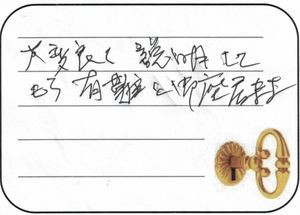 大変良く説明して
もらう有難と御座居ます